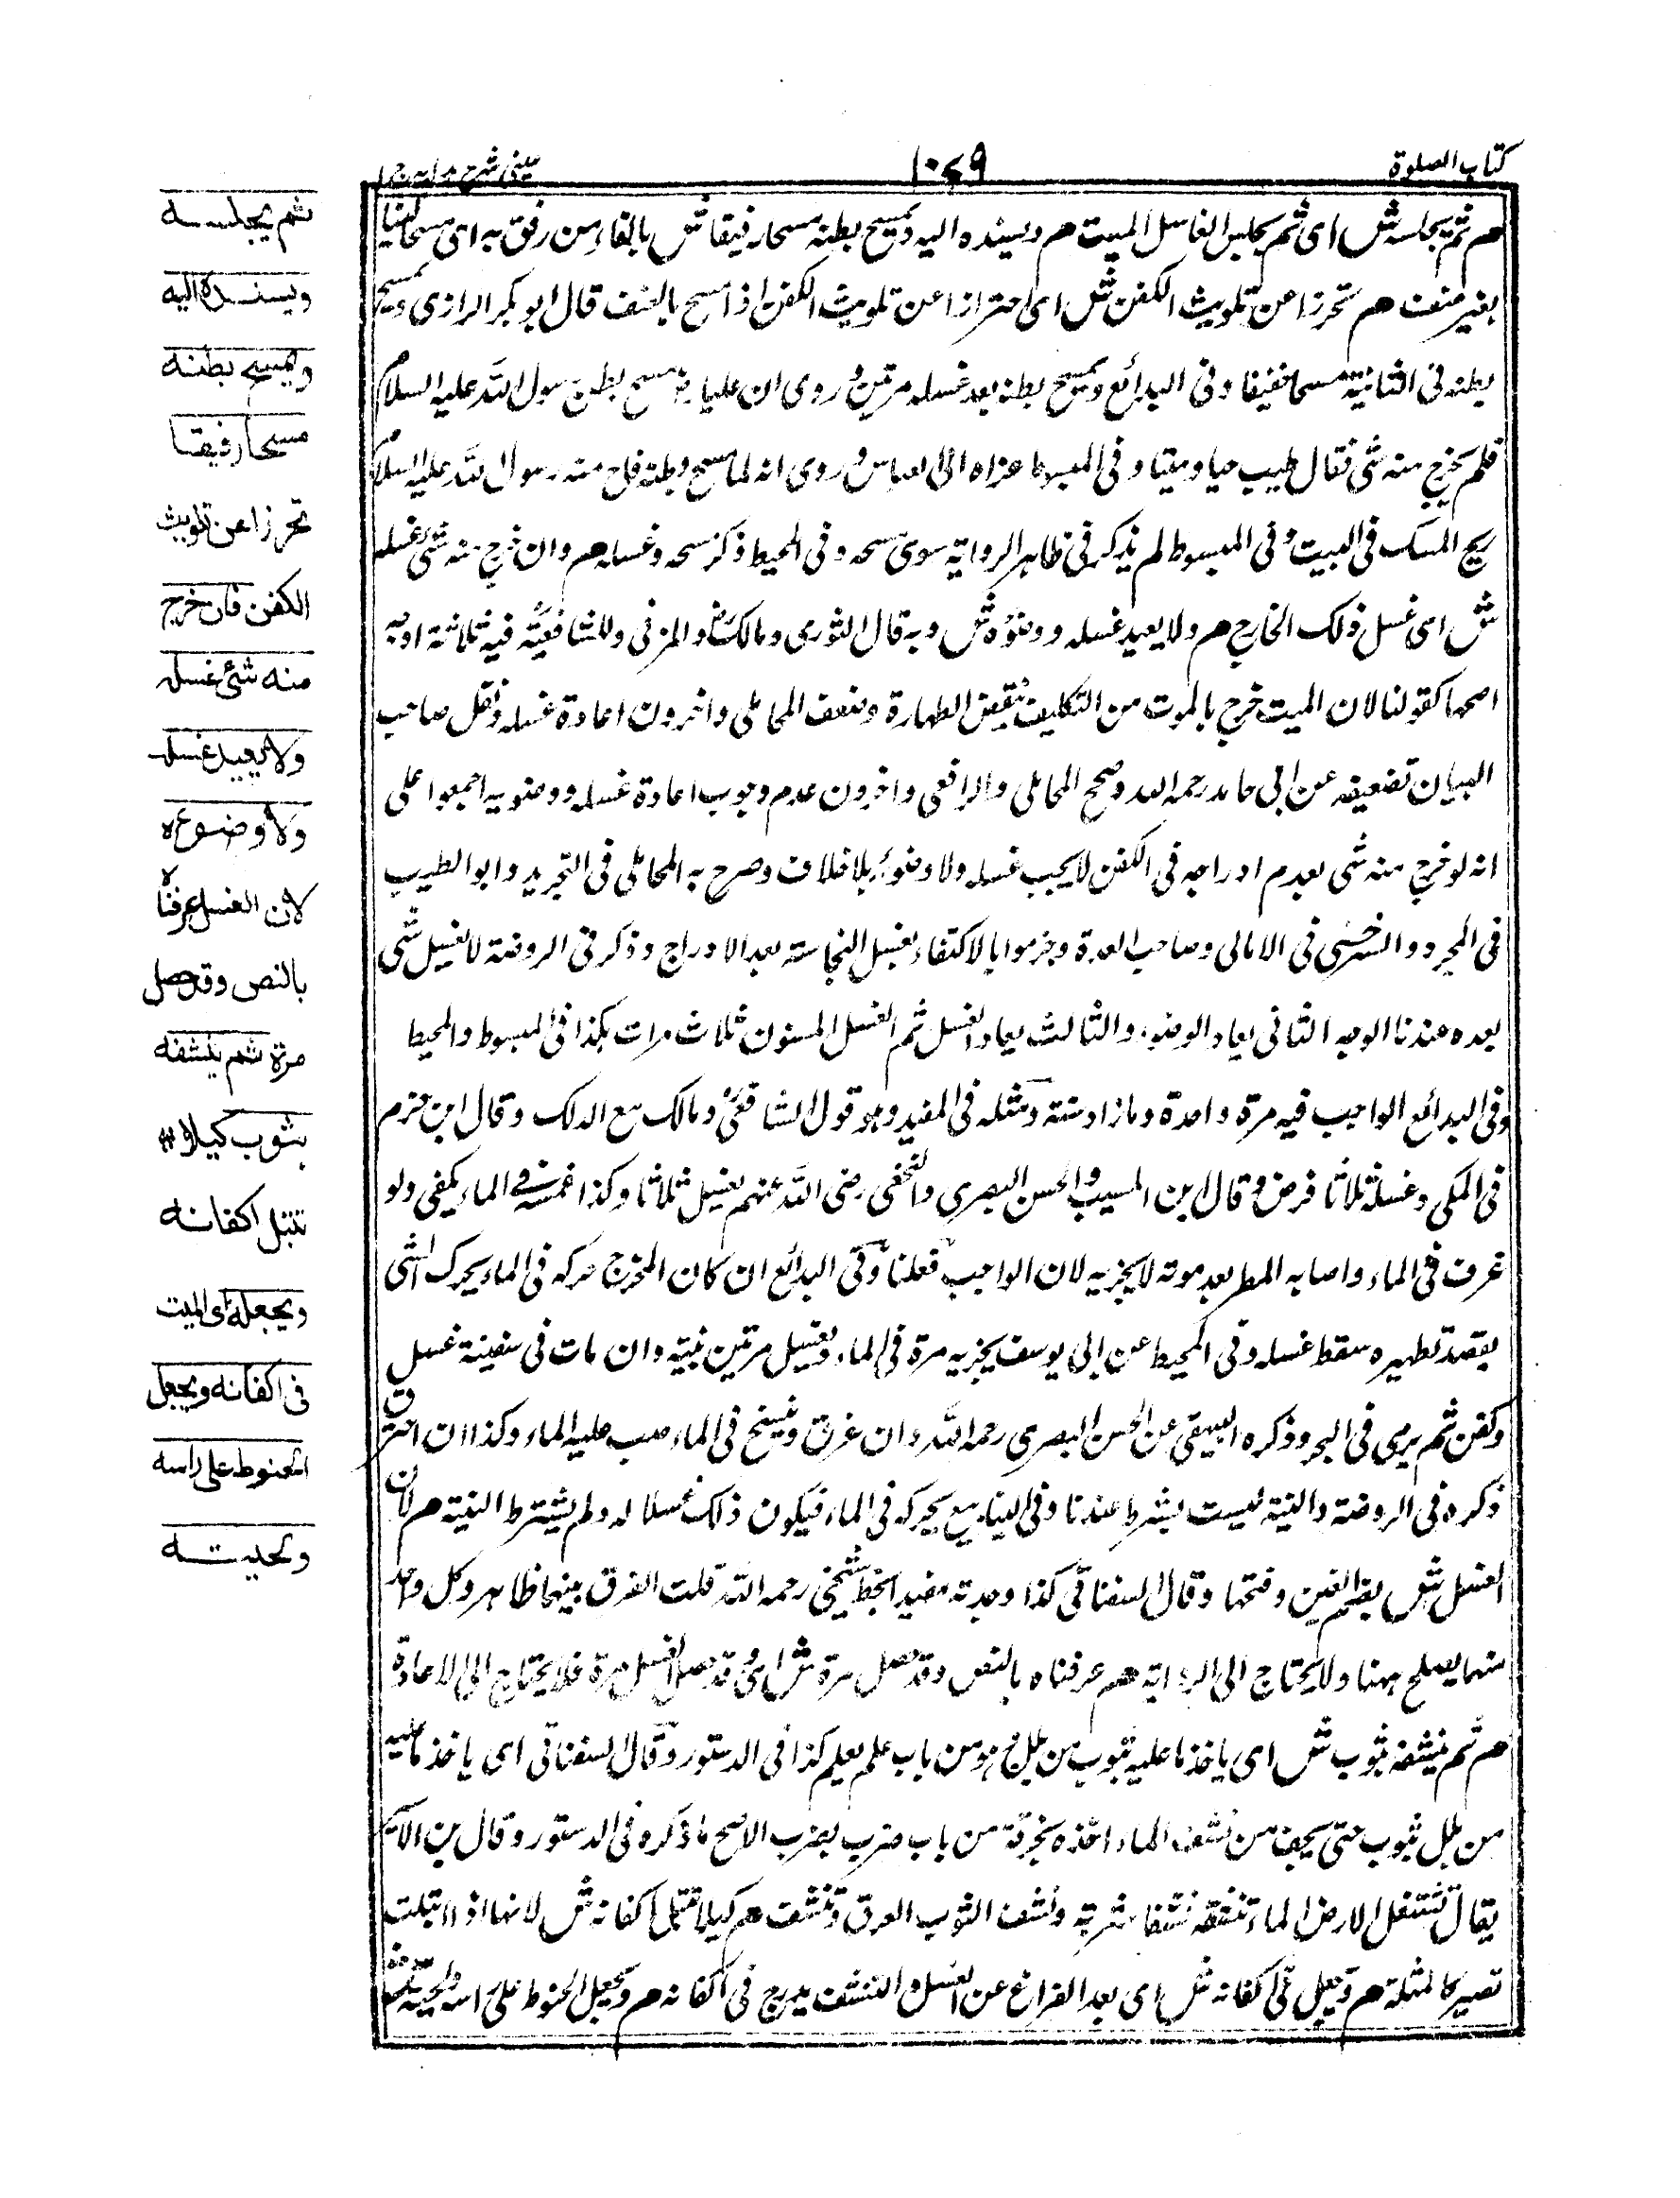 كتاب الصلوة
١٠٧٩
عينى شرح هدايه ج ١
هم ثم يجلسه ش اى ثم يجلس الغاسل الميت هم ويسنده اليه ويمسح بطنه مسحا رفيقا ش بالفاء من رفق به اى مسحا لينا
بغير عنف هم تحرزا عن تلويث الكفن ش اى احترازا عن تلويث الكفن اذا مسح بالعنف قال ابو بكر الرازى ويمسح
بطنه فى الثانية مسحا خفيفا وفى البدائع ويمسح بطنه بعد غسله مرتين وروى ان عليا رض مسح بطن رسول الله عليه السلام
فلم يخرج منه شى فقال طيب حيا وميتا وفى المبسوط عزاه الى العباس وروى انه لما مسح بطنه فاح منه رسول الله عليه السلام
ريح المسك فى البيت وفى المبسوط لم يذكر فى ظاهر الرواية سوى مسحه وفى المحيط ذكر مسحه وغسله هم وان خرج منه شئ غسله
ش اى غسل ذلك الخارج هم ولا يعيد غسله ووضوءه ش وبه قال الثورى ومالك والمزنى وللشافعية فيه ثلاثة اوجه
اصحها كقولنا لان الميت خرج بالموت من التكليف بنقض الطهارة وضعف المحاملى واخرون اعادة غسله ونقل صاحب
البيان تضعيفه عن ابى حامد رحمه الله وصحح المحاملى والرافعى واخرون عدم وجوب اعادة غسله ووضوئه اجمعوا على
انه لو خرج منه شى بعد ادراجه فى الكفن لا يجب غسله ولا وضوئه بلا خلاف وصرح به المحاملى فى التجريد وابو الطيب
فى المجرد والسرخسى فى الامالى وصاحب العدة وجزموا بالاكتفاء بغسل النجاسة بعد الادراج وذكر فى الروضة لا يغسل شى
بعده عندنا الوجه الثانى يعاد الوضوء والثالث يعاد الغسل ثم الغسل المسنون ثلاث مرات هكذا فى المبسوط والمحيط
وفى البدائع الواجب فيه مرة واحدة وما زاد سنة ومثله فى المفيد وهو قول الشافعى ومالك مع الدلك وقال ابن حزم
فى المحلى وغسله ثلاثا فرض وقال ابن المسيب والحسن البصرى والنخعى رضى الله عنهم يغسل ثلاثا وكذا غمسه فى الماء يكفى ولو
غرق فى الماء واصابه المطر بعد موته لا يجزيه لان الواجب فعلنا وفى البدائع ان كان المخرج حركه فى الماء يحرك الشى
بقصد تطهيره سقط غسله وفى المحيط عن ابى يوسف يجزيه مرة فى الماء ويغسل مرتين بنية وان مات فى سفينة غسل
وكفن ثم يرمى فى البحر وذكره البيهقى عن الحسن البصرى رحمه الله وان غرق وتفسخ فى الماء صب عليه الماء وكذا ان احترق
ذكره فى الروضة والنية ليست بشرط عندنا وفى الينابيع يحركه فى الماء فيكون ذلك غسلا له ولم يشترط النية هم لان
الغسل ش بضم الغين وفتحها وقال السغناقى كذا وجدته مقيدا بخط شيخى رحمه الله قلت الفرق بينهما ظاهر وكل واحد
منهما يصلح ههنا ولا يحتاج الى الرواية هم عرفناه بالنص وقد حصل مرة ش اى وقد حصل الغسل مرة فلا يحتاج الى الاعادة
هم ثم ينشفه بثوب ش اى ياخذ ما عليه بثوب من بلل وهو من باب علم يعلم كذا فى الدستور وقال السغناقى اى ياخذ ما عليه
من بلل بثوب حتى يجف من نشف الماء اخذه بخرقة من باب ضرب يضرب الاصح ما ذكره فى الدستور وقال ابن الاثير
يقال الارض الماء تنشفه نشفا شربته ونشف الثوب العرق وتنشف هم كيلا تبتل اكفانه ش لانها اذا ابتلت
تصير كالمثلة هم ويجعل فى اكفانه ش اى بعد الفراغ عن الغسل والتنشف يدرج فى اكفانه هم ويجعل الحنوط على راسه ولحيته ش
ثم يجلسه
ويسنده اليه
ويمسح بطنه
مسحا رفيقا
تحرزا عن تلويث
الكفن فان خرج
منه شئ غسله
ولا يعيد غسله
ولا وضوءه
لان الغسل عرفناه
بالنص وقد حصل
مرة ثم ينشفه
بثوب كيلا
تبتل اكفانه
ويجعله اى الميت
فى اكفانه ويجعل
الحنوط على راسه
ولحيته